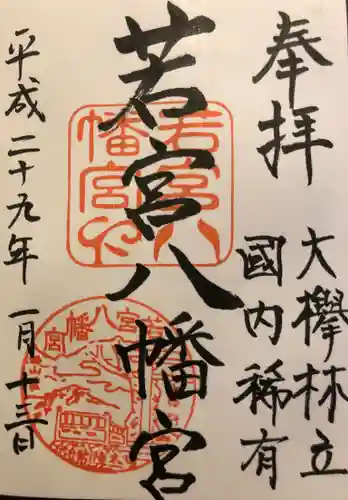 奉拝
大欅林立
國内稀有
若宮八幡宮
平成二十九年 一月十三日
若宮八幡宮